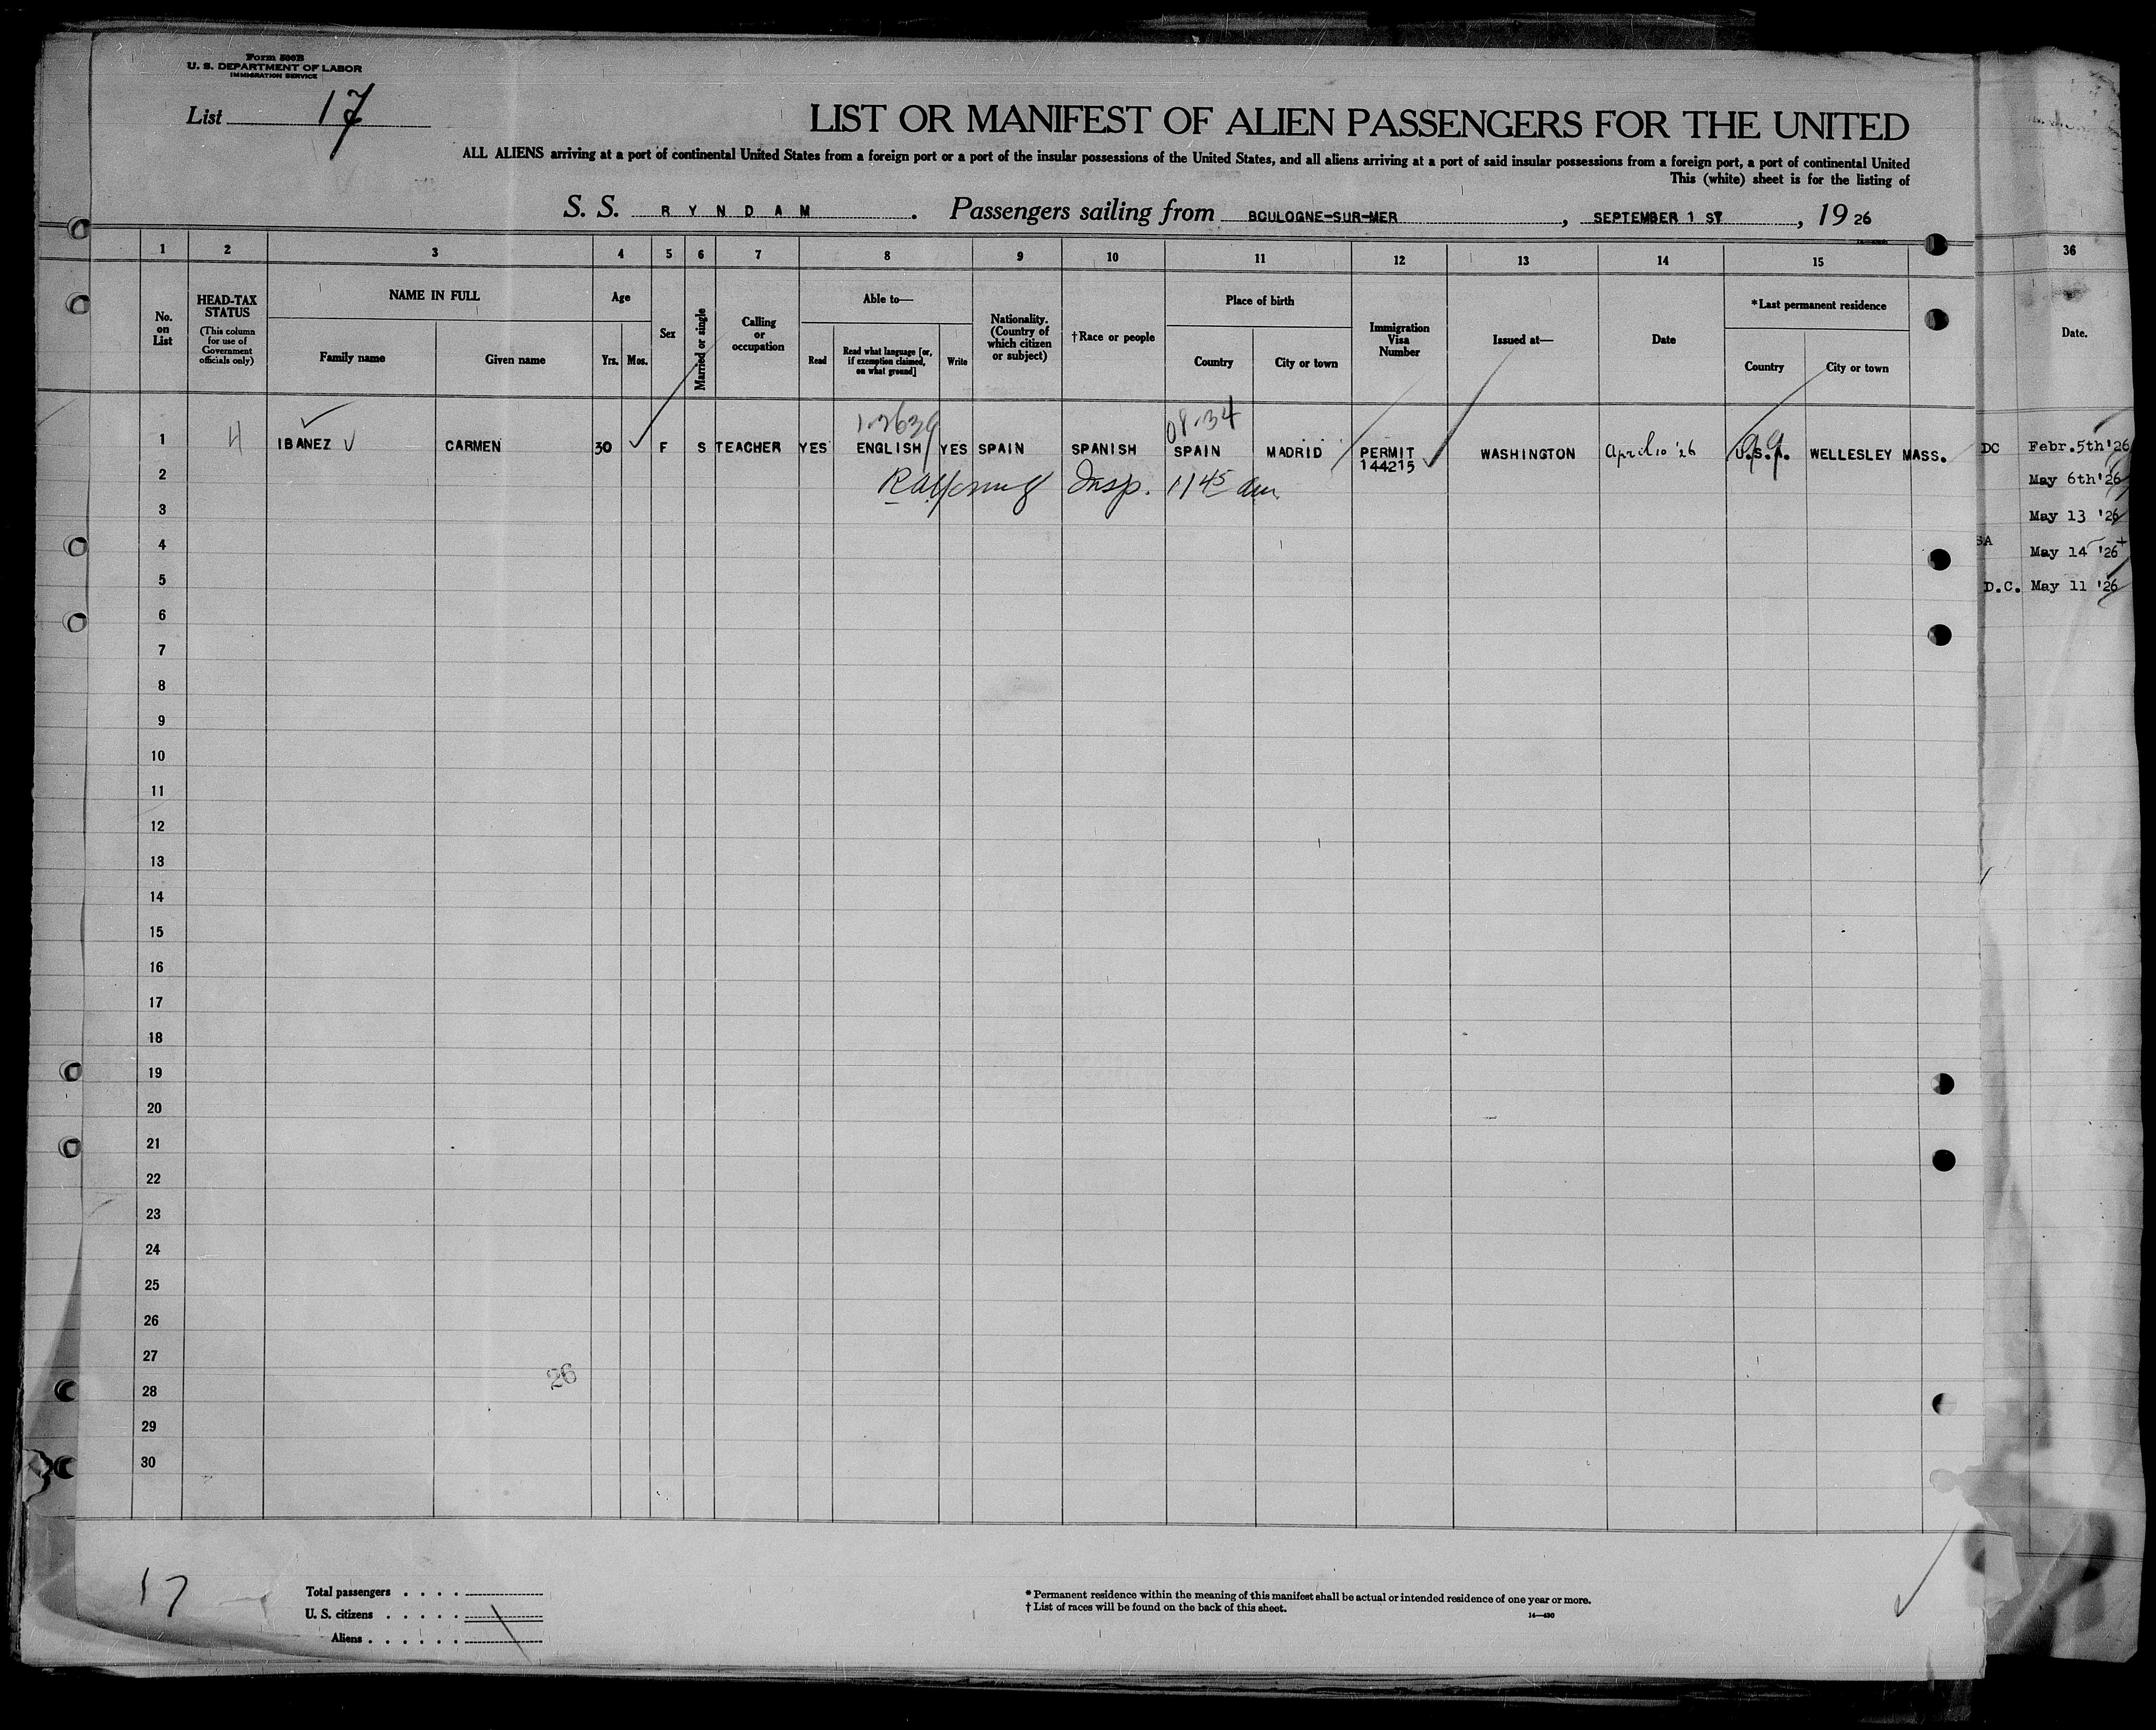 Form 500B
U. S. DEPARTMENT OF LABOR
IMMIGRATION SERVICE
List 17
LIST OR MANIFEST OF ALIEN PASSENGERS FOR THE UNITED
ALL ALIENS arriving at a port of continental United States from a foreign port or a port of the insular possessions of the United States, and all aliens arriving at a port of said insular possessions from a foreign port, a port of continental United
This (white) sheet is for the listing of
S. S. RYNDAM. Passengers sailing from BOULOGNE-SUR-MER, SEPTEMBER 1 ST, 19 26
1 2 3 4 5 6 7 8 9 10 11 12 13 14 15 36
No. on List
HEAD-TAX STATUS
(This column for use of Government officials only)
NAME IN FULL
Family name Given name
Age
Yrs. Mos.
Sex
Married or single
Calling or occupation
Able to—
Read
Read what language [or, if exemption claimed, on what ground]
Write
Nationality. (Country of which citizen or subject)
†Race or people
Place of birth
Country City or town
Immigration Visa Number
Issued at—
Date
*Last permanent residence
Country City or town
Date.
08-34
1 4 IBANEZ CARMEN 30 F S TEACHER YES ENGLISH YES SPAIN SPANISH SPAIN MADRID PERMIT 144215 WASHINGTON April 10 '26 U.S.A. WELLESLEY MASS.
DC Febr.5th'26
2 Insp. 11 45 am
May 6th'26
3
May 13 '26
4
SA May 14 '26
5
D.C. May 11 '26
6
7
8
9
10
11
12
13
14
15
16
17
18
19
20
21
22
23
24
25
26
27
26
28
29
30
17
Total passengers . . . .
U. S. citizens . . . . .
Aliens . . . . . .
* Permanent residence within the meaning of this manifest shall be actual or intended residence of one year or more.
† List of races will be found on the back of this sheet.
14—430